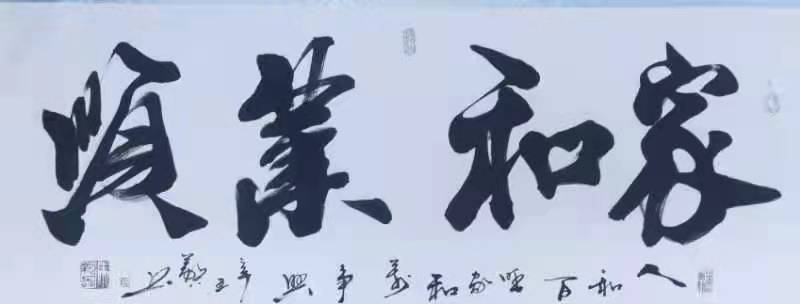 家和業順
人和百旺家和萬事興辛丑